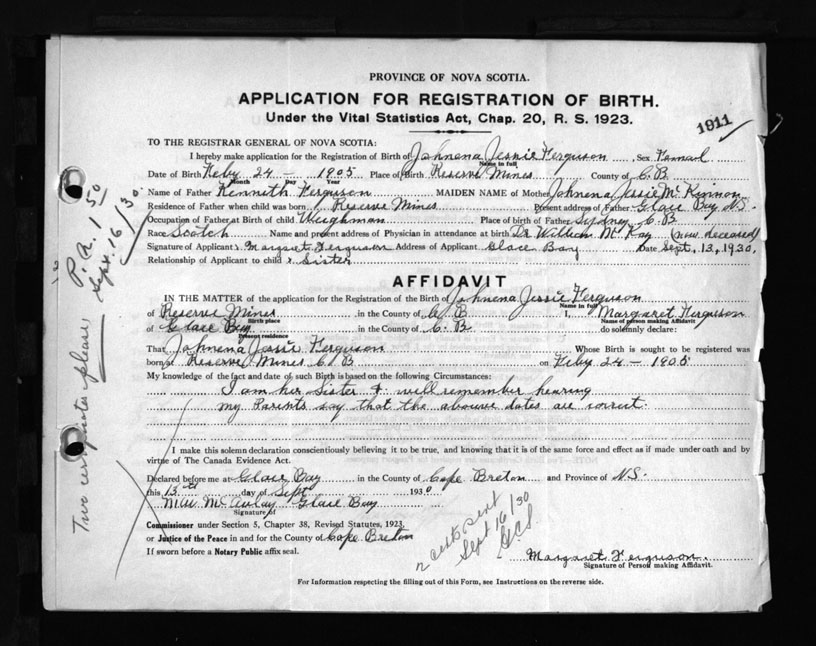 PROVINCE OF NOVA SCOTIA.
APPLICATION FOR REGISTRATION OF BIRTH.
Under the Vital Statistics Act, Chap. 20, R. S. 1923.
1911
TO THE REGISTRAR GENERAL OF NOVA SCOTIA:
I hereby make application for the Registration of Birth of Johnena Jessie Ferguson, Sex Femail
Name in full
Date of Birth Feby 24 - 1905 Place of Birth Reserve Mines County of C.B.
Month Day Year
Name of Father Kenneth Ferguson MAIDEN NAME of Mother Johnena Jessie McKinnon
Residence of Father when child was born Reserve Mines Present address of Father Glace Bay N.S.
Occupation of Father at Birth of child Weighman Place of birth of Father Sydney C.B
Race Scotch Name and present address of Physician in attendance at birth Dr William McKay (now deceased)
Signature of Applicant Margaret Ferguson Address of Applicant Glace Bay Date Sept. 13, 1930.
Relationship of Applicant to child Sister
AFFIDAVIT
IN THE MATTER of the application for the Registration of the Birth of Johnena Jessie Ferguson
Name in full
of Reserve Mines in the County of C.B I, Margaret Ferguson
Birth place Name of person making Affidavit
of Glace Bay in the County of C.B. do solemnly declare:
Present residence
That Johnena Jessie Ferguson Whose Birth is sought to be registered was
born at Reserve Mines C.B on Feby 24 - 1905
My knowledge of the fact and date of such Birth is based on the following Circumstances:
I am her Sister & will remember hearing
my Parents say that the abouve dates are correct.
I make this solemn declaration conscientiously believing it to be true, and knowing that it is of the same force and effect as if made under oath and by
virtue of The Canada Evidence Act.
Declared before me at Glace Bay in the County of Cape Breton and Province of N.S.
this 15th day of Sept 1930
McAulay Glace Bay
Signature of
Commissioner under Section 5, Chapter 38, Revised Statutes, 1923,
or Justice of the Peace in and for the County of Cape Breton
If sworn before a Notary Public affix seal.
Margaret Ferguson.
Signature of Person making Affidavit.
For Information respecting the filling out of this Form, see Instructions on the reverse side.
2 certs sent
Sept 16/30
Two certificates please,
P.A. 1.50
Sept. 16/30.